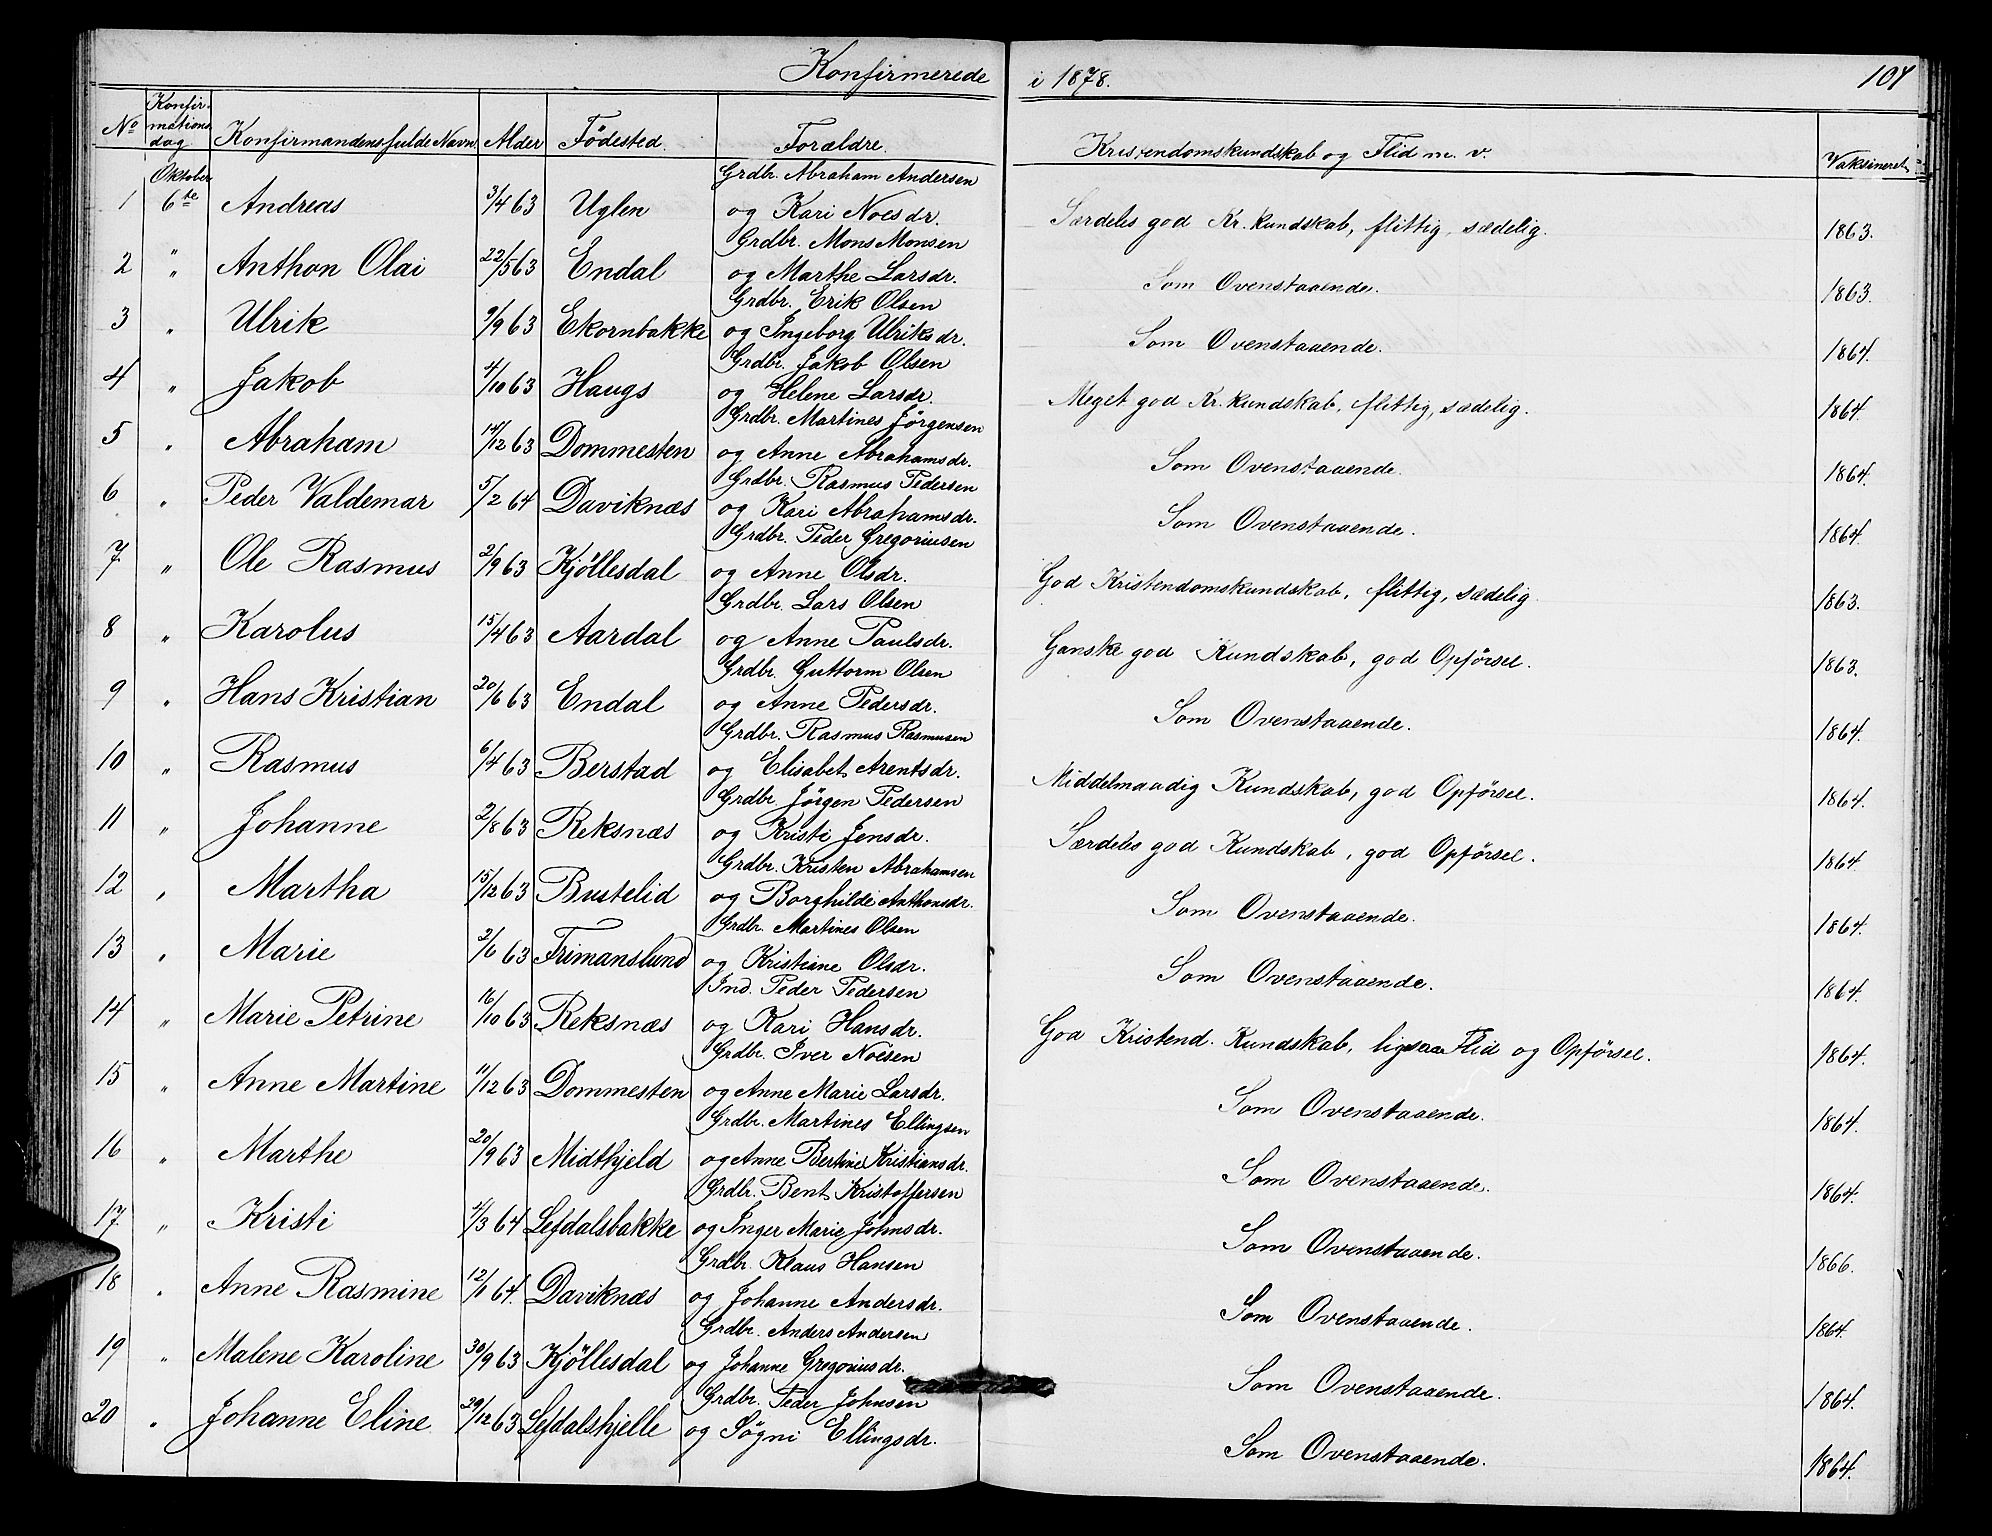 Konfirmerede i 1878. 107
No Konfirmations dag Konfirmandens fulde Navn Alder Födested. Forældre. Kristendomskundskab og Flid m. v. Vaksineret
Oktober Grdbr. Abraham Andersen
1 6te Andreas 3/4 63 Uglen og Kari Noesdr. Særdeles god Kr. kundskab, flittig, sædelig. 1863.
Grdbr. Mons Monsen
2 " Anthon Olai 22/5 63 Endal og Marthe Larsdr. Som Ovenstaaende. 1863.
Grdbr. Erik Olsen
3 " Ulrik 9/9 63 Ekornbakke og Ingeborg Ulriksdr. Som Ovenstaaende. 1864.
Grdbr. Jakob Olsen
4 " Jakob 4/10 63 Haugs og Helene Larsdr. Meget god Kr. kundskab, flittig, sædelig. 1864.
Grdbr. Martines Jörgensen
5 " Abraham 14/12 63 Dommesten og Anne Abrahamsdr. Som Ovenstaaende. 1864.
Grdbr. Rasmus Pedersen
6 " Peder Valdemar 5/2 64 Daviknæs og Kari Abrahamsdr. Som Ovenstaaende. 1864.
Grdbr. Peder Gregoriusen
7. " Ole Rasmus 2/9 63 Kjöllesdal og Anne Olsdr. God Kristendomskundskab, flittig, sædelig 1863.
Grdbr. Lars Olsen
8 " Karolus 15/4 63 Aardal og Anne Paulsdr. Ganske god Kundskab, god Opförsel. 1863.
Grdbr. Guttorm Olsen
9 " Hans Kristian 20/6 63 Endal og Anne Pedersdr. Som Ovenstaaende. 1864.
Grdbr. Rasmus Rasmusen
10 " Rasmus 6/4 63 Berstad og Elisabet Arentsdr. Middelmaadig Kundskab, god Opförsel. 1864.
Grdbr Jörgen Pedersen
11 " Johanne 2/8 63 Reksnæs og Kristi Jensdr. Særdeles god Kundskab, god Opförsel. 1864.
Grdbr. Kristen Abrahamsen
12 " Martha 15/12 63 Bustelid og Borghilde Anthonsdr. Som Ovenstaaende. 1864.
Grdbr. Martines Olsen
13 " Marie 2/6 63 Frimanslund og Kristiane Olsdr. Som Ovenstaaende. 1864.
Ind. Peder Pedersen
14 " Marie Petrine 16/10 63 Reksnæs og Kari Hansdr. God Kristend. Kundskab, ligesaa Flid og Opförsel. 1864.
Grdbr. Iver Noesen
15 " Anne Martine 11/12 63 Dommesten og Anne Marie Larsdr. Som Ovenstaaende. 1864.
Grdbr. Martines Ellingsen
16 " Marthe 20/9 63 Midthjeld og Anne Bertine Kristiansdr. Som Ovenstaaende. 1864.
Grdbr. Bent Kristoffersen
17. " Kristi 4/3 64 Lefdalsbakke og Inger Marie Johnsdr. Som Ovenstaaende. 1866.
Grdbr. Klaus Hansen
18 " Anne Rasmine 12/1 64. Daviknæs og Johanne Andersdr. Som Ovenstaaende. 1864.
Grdbr. Anders Andersen
19 " Malene Karoline 30/9 63 Kjöllesdal og Johanne Gregoriusdr. Som Ovenstaaende. 1864.
Grdbr. Peder Johnsen
20 " Johanne Eline. 29/12 63 Lefdalshjelle og Sögni Ellingsdr. Som Ovenstaaende. 1864.